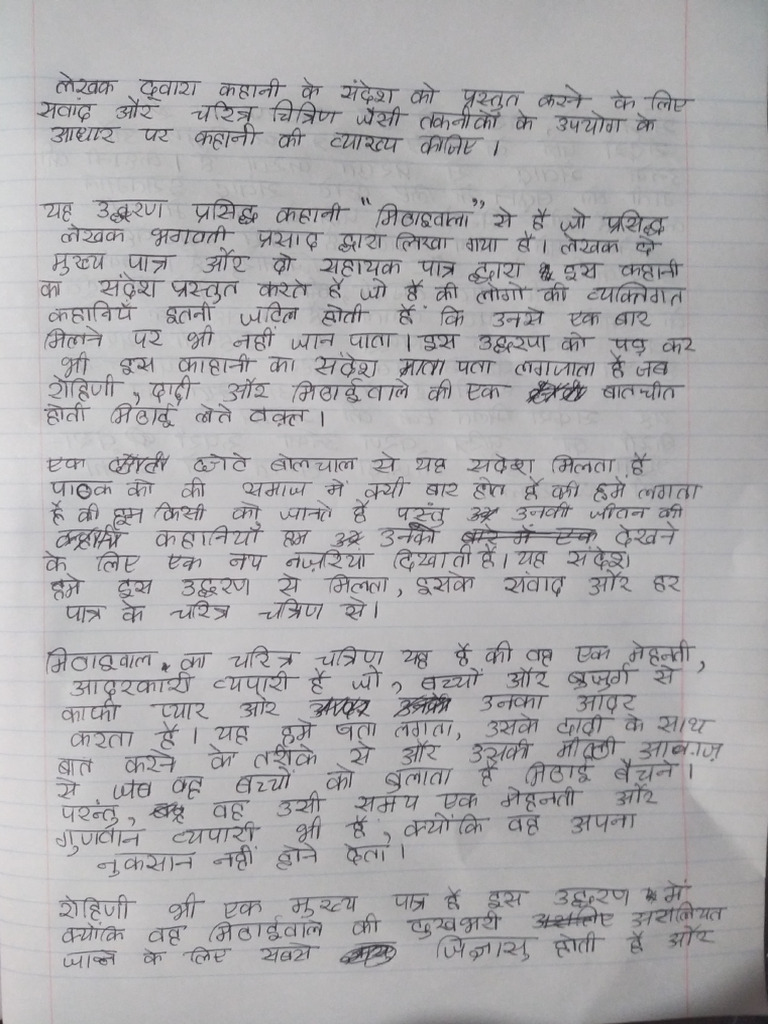 लेखक द्वारा कहानी के संदेश को प्रस्तुत करने के लिए
सवांद और चरित्र चित्रिण जैसी तकनीकों के उपयोग के
आधार पर कहानी की व्याख्य कीजिए ।
यह उद्धरण प्रसिद्ध कहानी "मिठाइवाला" से है जो प्रसिद्ध
लेखक भगवती प्रसाद द्वारा लिखा गया है। लेखक दो
मुख्य पात्र और दो सहायक पात्र द्वारा इस कहानी
का संदेश प्रस्तुत करते है जो है की लोगों की व्यक्तिगत
कहानियाँ इतनी जटिल होती हैं कि उनसे एक बार
मिलने पर भी नहीं जान पाता। इस उद्धरण को पढ़ कर
भी इस काहानी का संदेश पता लगजाता है जब
रोहिणी, दादी और मिठाईवाले की एक बातचीत
होती मिठाई लेते वक़्त।
एक छोटे बोलचाल से यह संदेश मिलता है
पाठक को की समाज में क्यी बार होत है की हमे लगता
है की हम किसी को जानते है परंतु उनकी जीवन की
कहानियाँ हम उनको देखने
के लिए एक नए नज़रिया दिखाती है। यह संदेश
हमे इस उद्धरण से मिलता, इसके संवाद और हर
पात्र के चरित्र चत्रिण से।
मिठाइवाल का चरित्र चत्रिण यह है की वह एक मेहनती,
आदरकारी व्यपारी है जो, बच्चों और बुजुर्ग से
काफी प्यार और उनका आदर
करता है। यह हमे पता लगता, उसके दादी के साथ
बात करने के तरीके से और उसकी मीठी आवाज़
से जब वह बच्चों को बुलाता है मिठाई बैचने।
परंतु, वह उसी समय एक मेहनती और
गुणवान व्यपारी भी है, क्योंकि वह अपना
नुकसान नहीं होने देता।
रोहिणी भी एक मुख्य पात्र है इस उद्धरण में
क्योंकि वह मिठाईवाले की दुखभरी असलियत
जानने के लिए सबसे जिज्ञासु होती है और